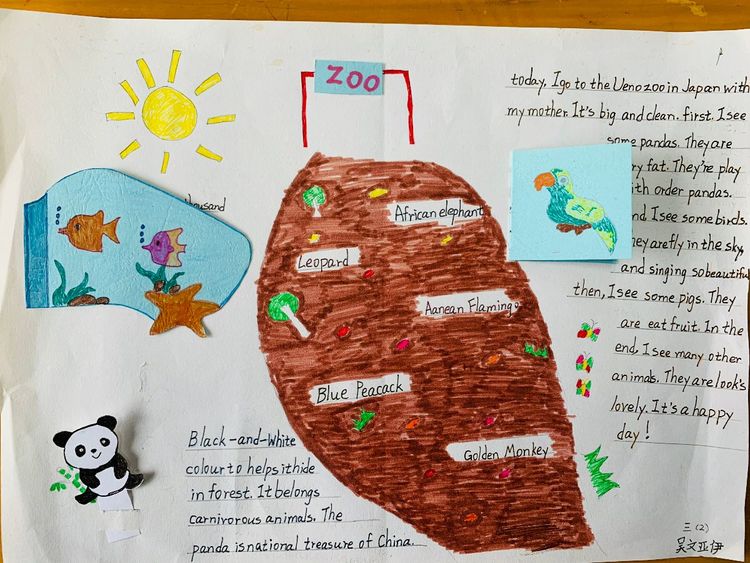 ZOO
today, I go to the Ueno zoo in Japan with
my mother. It's big and clean. first. I see
some pandas. They are
ry fat. They're play
ith order pandas.
nd I see some birds.
hey are fly in the sky,
and singing so beautiful
then, I see some pigs. They
are eat fruit. In the
end, I see many other
animals. They are look's
lovely. It's a happy
day!
thousand
African elephant
Leopard
Aanean Flamingo
Blue Peacack
Golden Monkey
Black-and-White
colour to helps it hide
in forest. It belongs
carnivorous animals. The
panda is national treasure of China.
三(2)
吴文亚伊